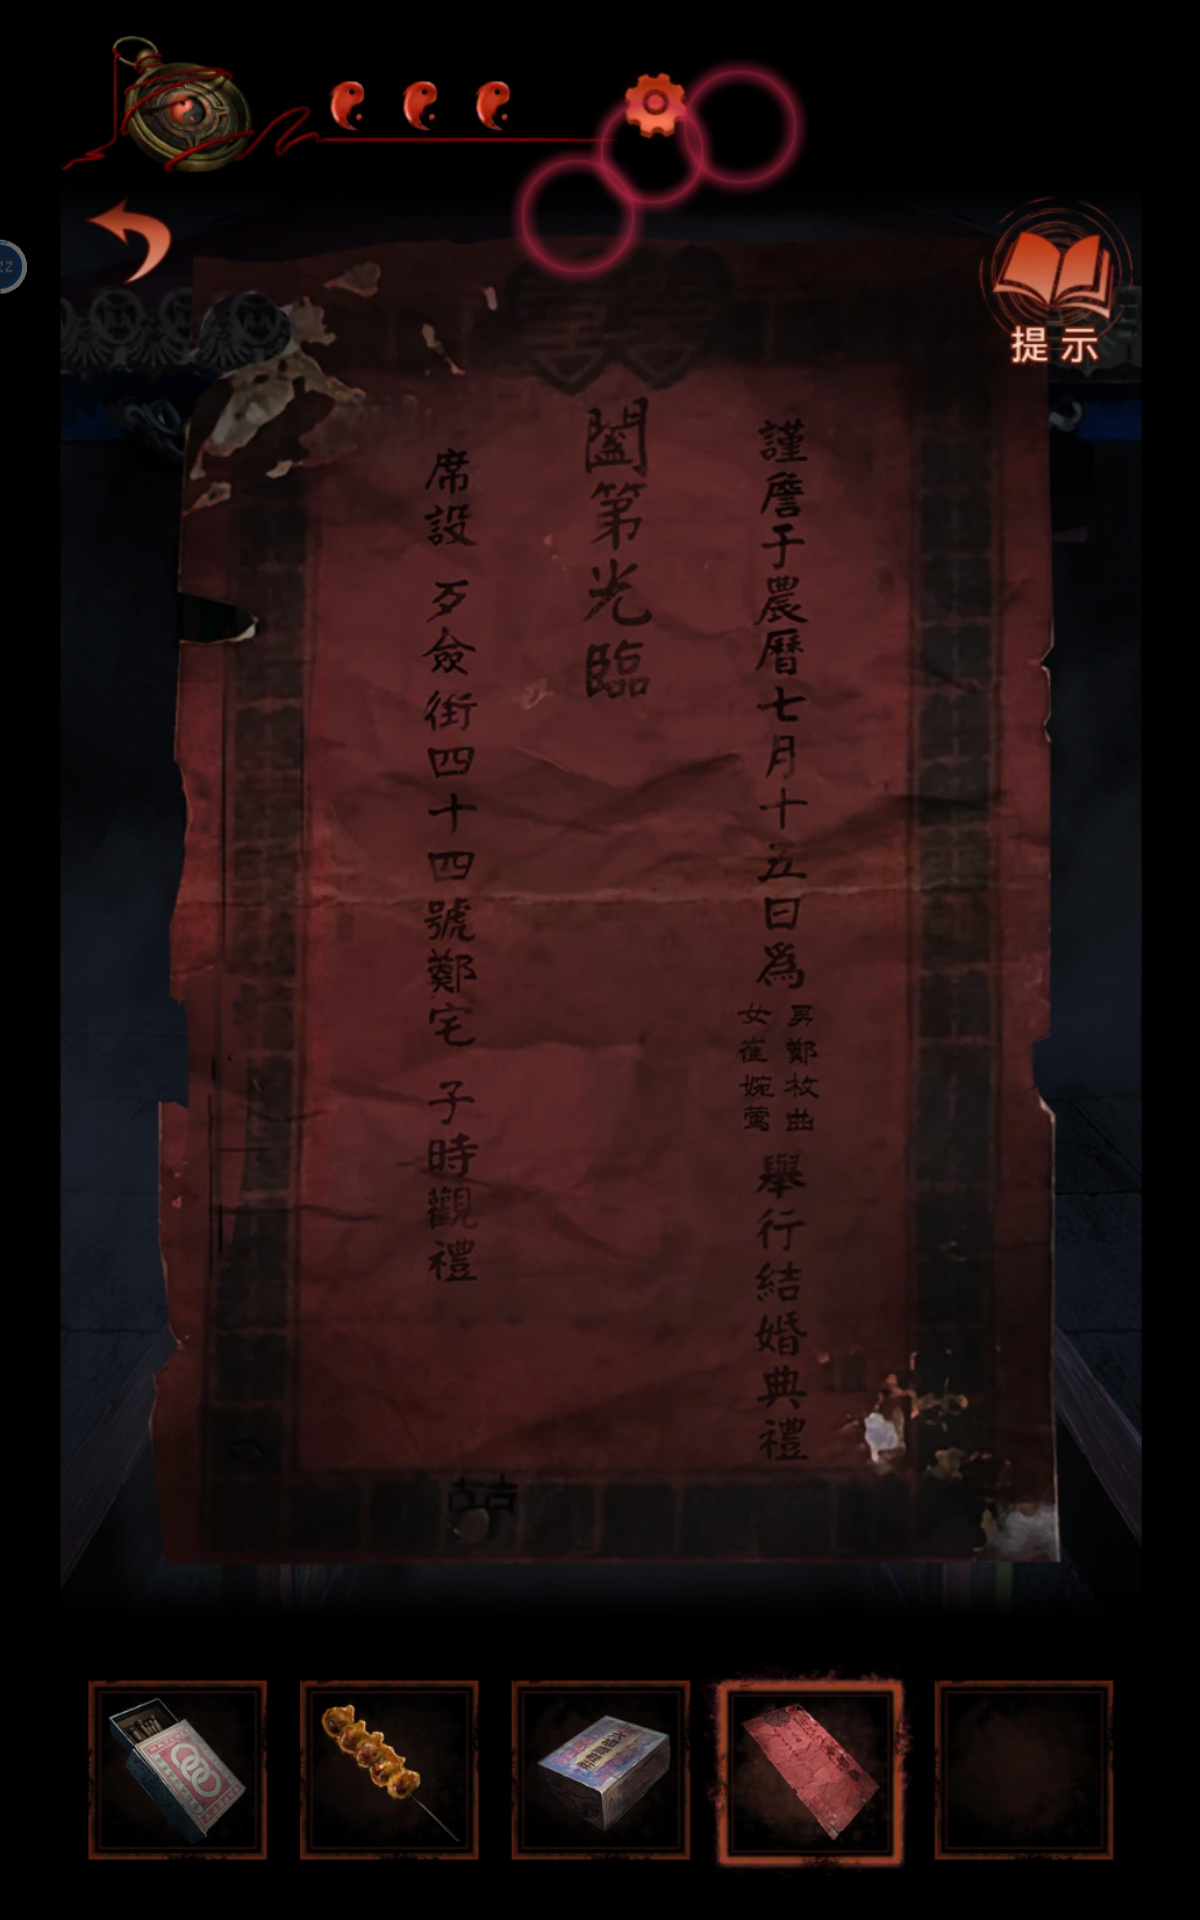 提示
謹詹于農曆七月十五日為
男鄭枚曲
女崔婉鶯
舉行結婚典禮
闔第光臨
席設 歹僉街四十四號鄭宅 子時觀禮